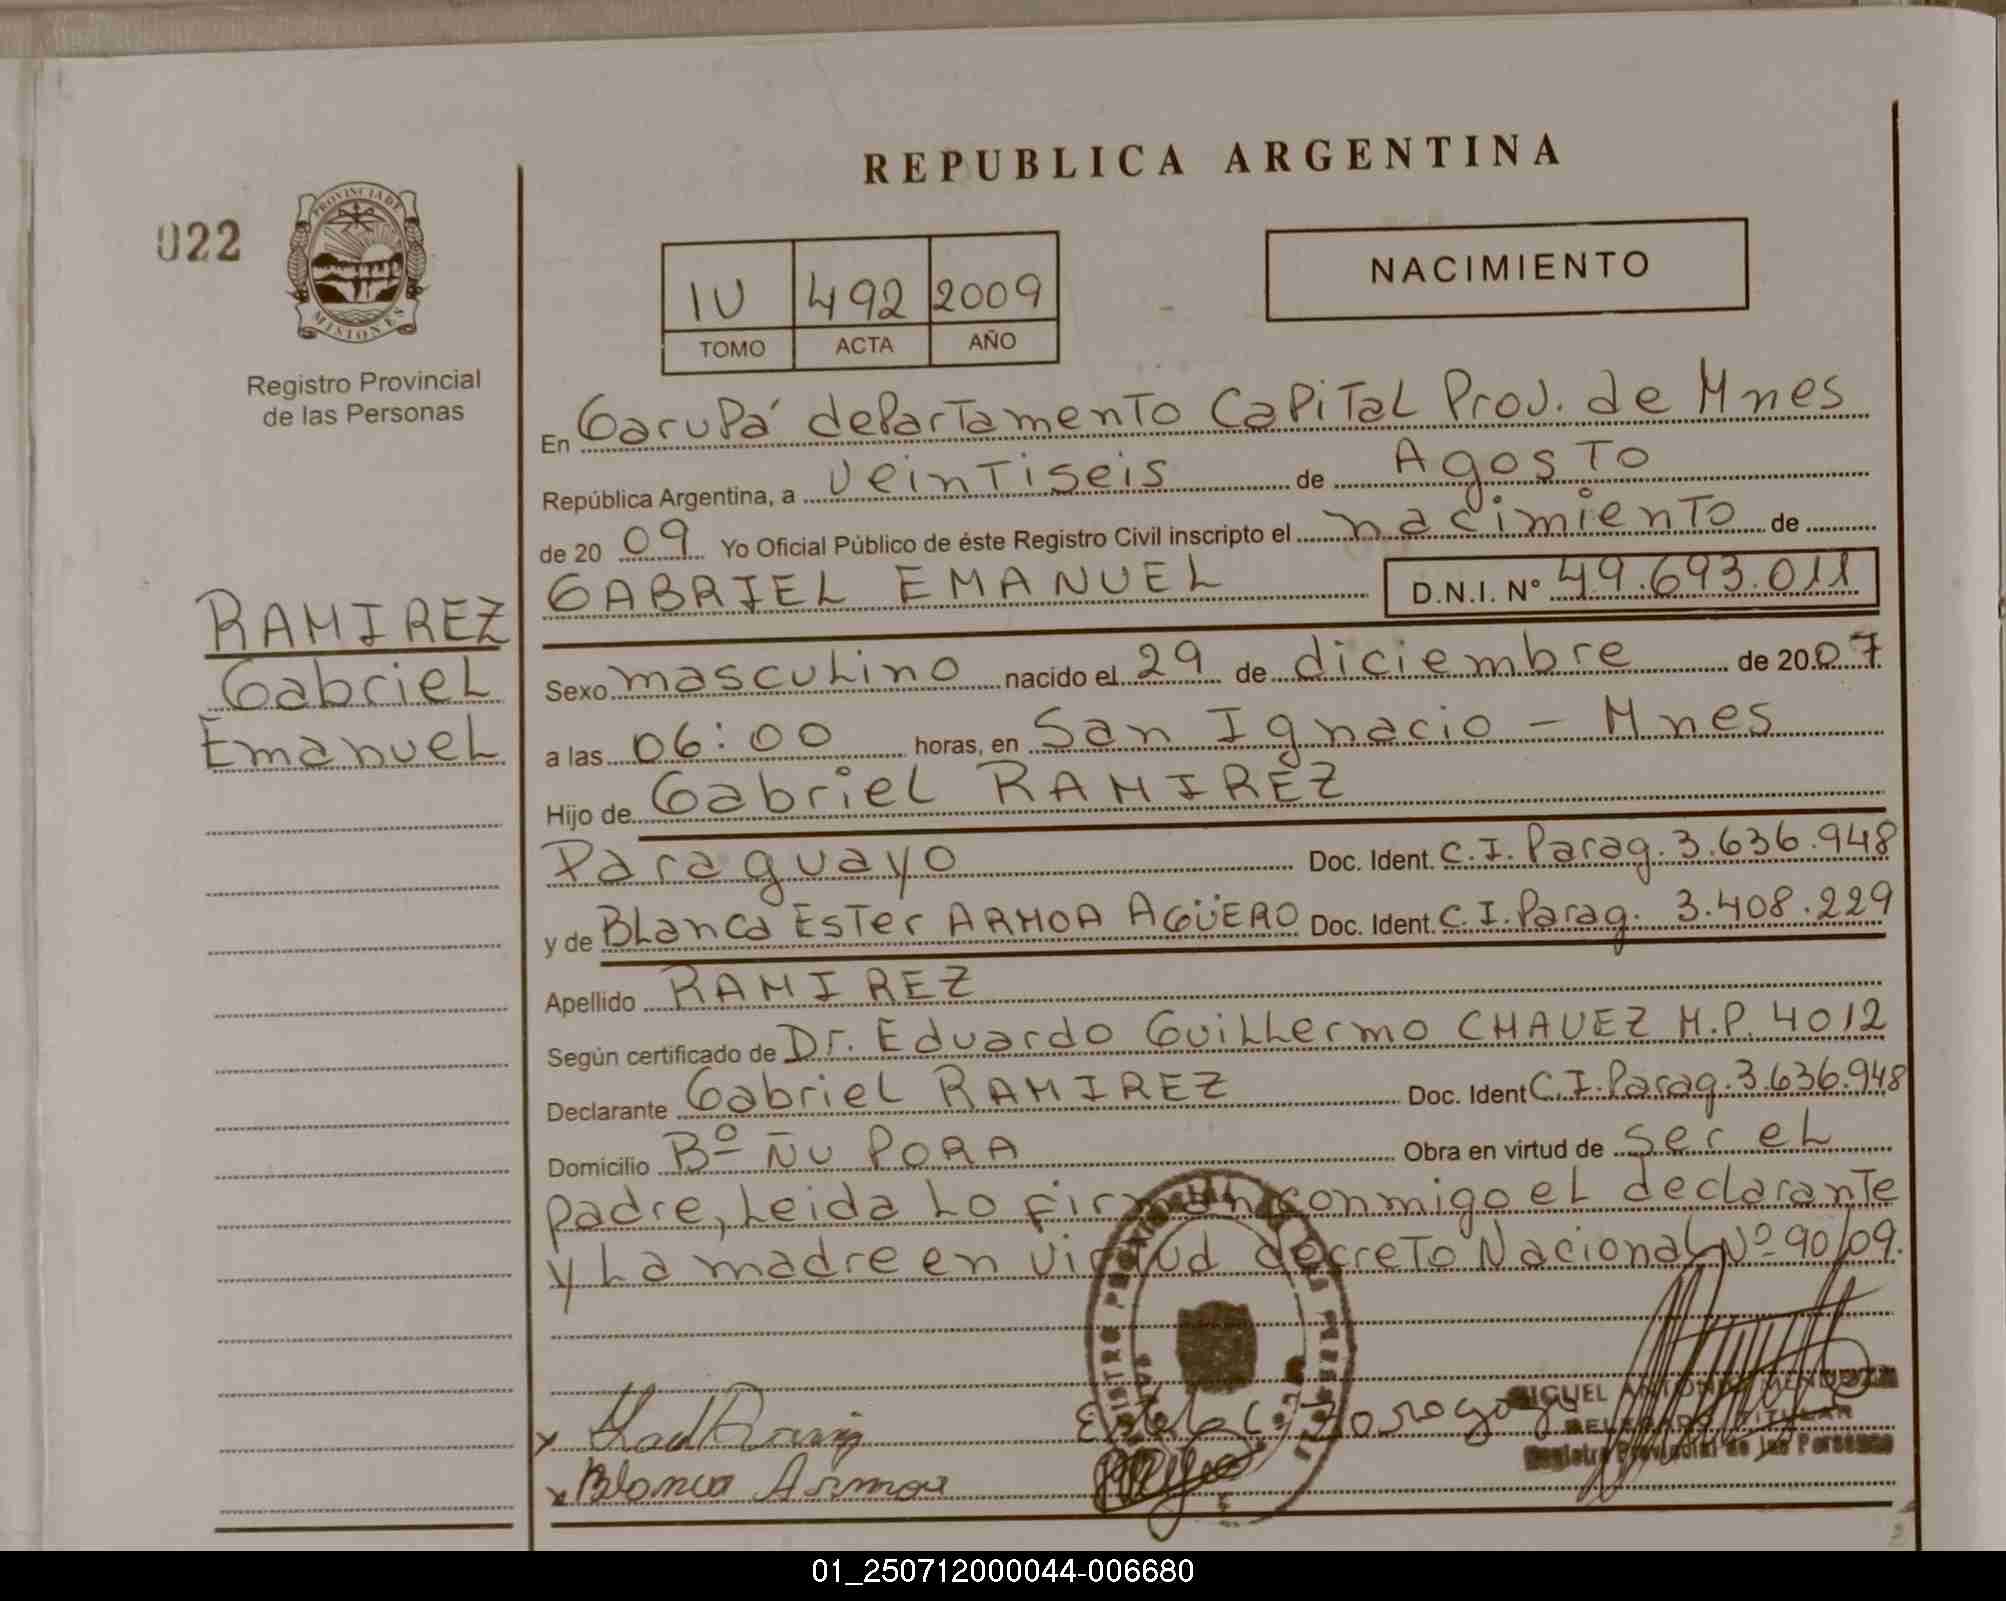 REPUBLICA ARGENTINA
022
PROVINCIA DE
MISIONES
Registro Provincial
de las Personas
IV 492 2009
TOMO ACTA AÑO
NACIMIENTO
En Garupá departamento Capital Prov. de Mnes
República Argentina, a veintiseis de Agosto
de 2009 Yo Oficial Público de éste Registro Civil inscripto el nacimiento de
GABRIEL EMANUEL D.N.I. Nº 49.693.011
RAMIREZ
Gabriel
Emanuel
Sexo masculino nacido el 29 de diciembre de 2007
a las 06:00 horas, en San Ignacio - Mnes
Hijo de Gabriel RAMIREZ
Paraguayo Doc. Ident. C.I. Parag. 3.636.948
y de Blanca Ester ARMOA AGÜERO Doc. Ident. C.I. Parag. 3.408.229
Apellido RAMIREZ
Según certificado de Dr. Eduardo Guillermo CHAVEZ M.P. 4012
Declarante Gabriel RAMIREZ Doc. Ident C.I. Parag. 3.636.948
Domicilio Bº ÑU PORA Obra en virtud de ser el
padre, Leida lo firman conmigo el declarante
y la madre en virtud decreto Nacional Nº 90/09.
MIGUEL ANTONIO
DELEGADO TITULAR
Registro Provincial de las Personas
Blanca Armoa
01_250712000044-006680